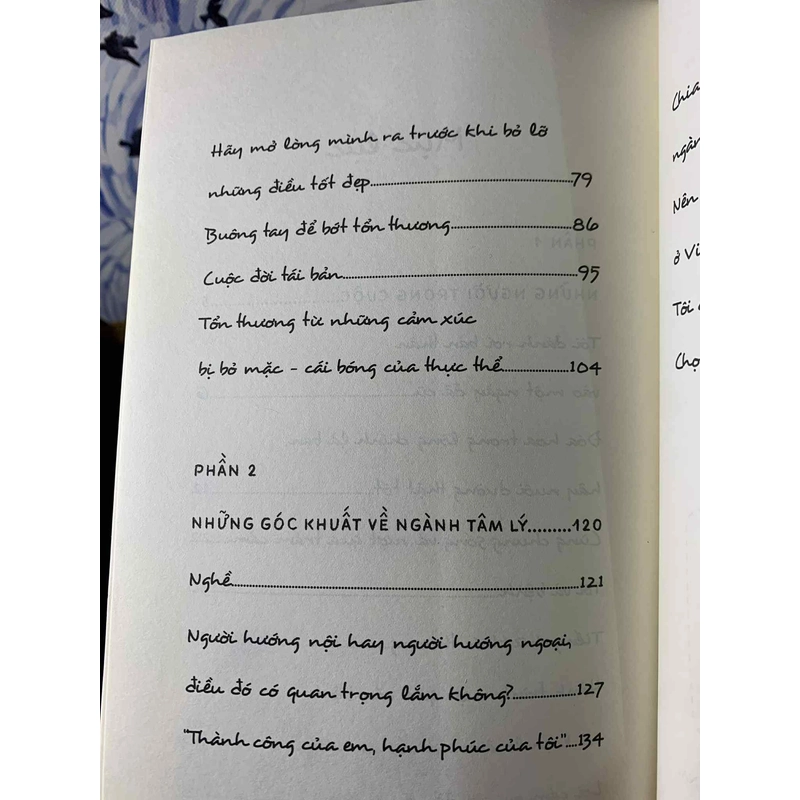 Hãy mở lòng mình ra trước khi bỏ lỡ
những điều tốt đẹp..............................79
Buông tay để bớt tổn thương..................86
Cuộc đời tái bản...................................95
Tổn thương từ những cảm xúc
bị bỏ mặc - cái bóng của thực thể.............104
PHẦN 2
NHỮNG GÓC KHUẤT VỀ NGÀNH TÂM LÝ.........120
Nghề....................................................121
Người hướng nội hay người hướng ngoại,
điều đó có quan trọng lắm không?............127
"Thành công của em, hạnh phúc của tôi"....134
Chia
ngàn
Nên
ở Vi
Tôi
Chọ